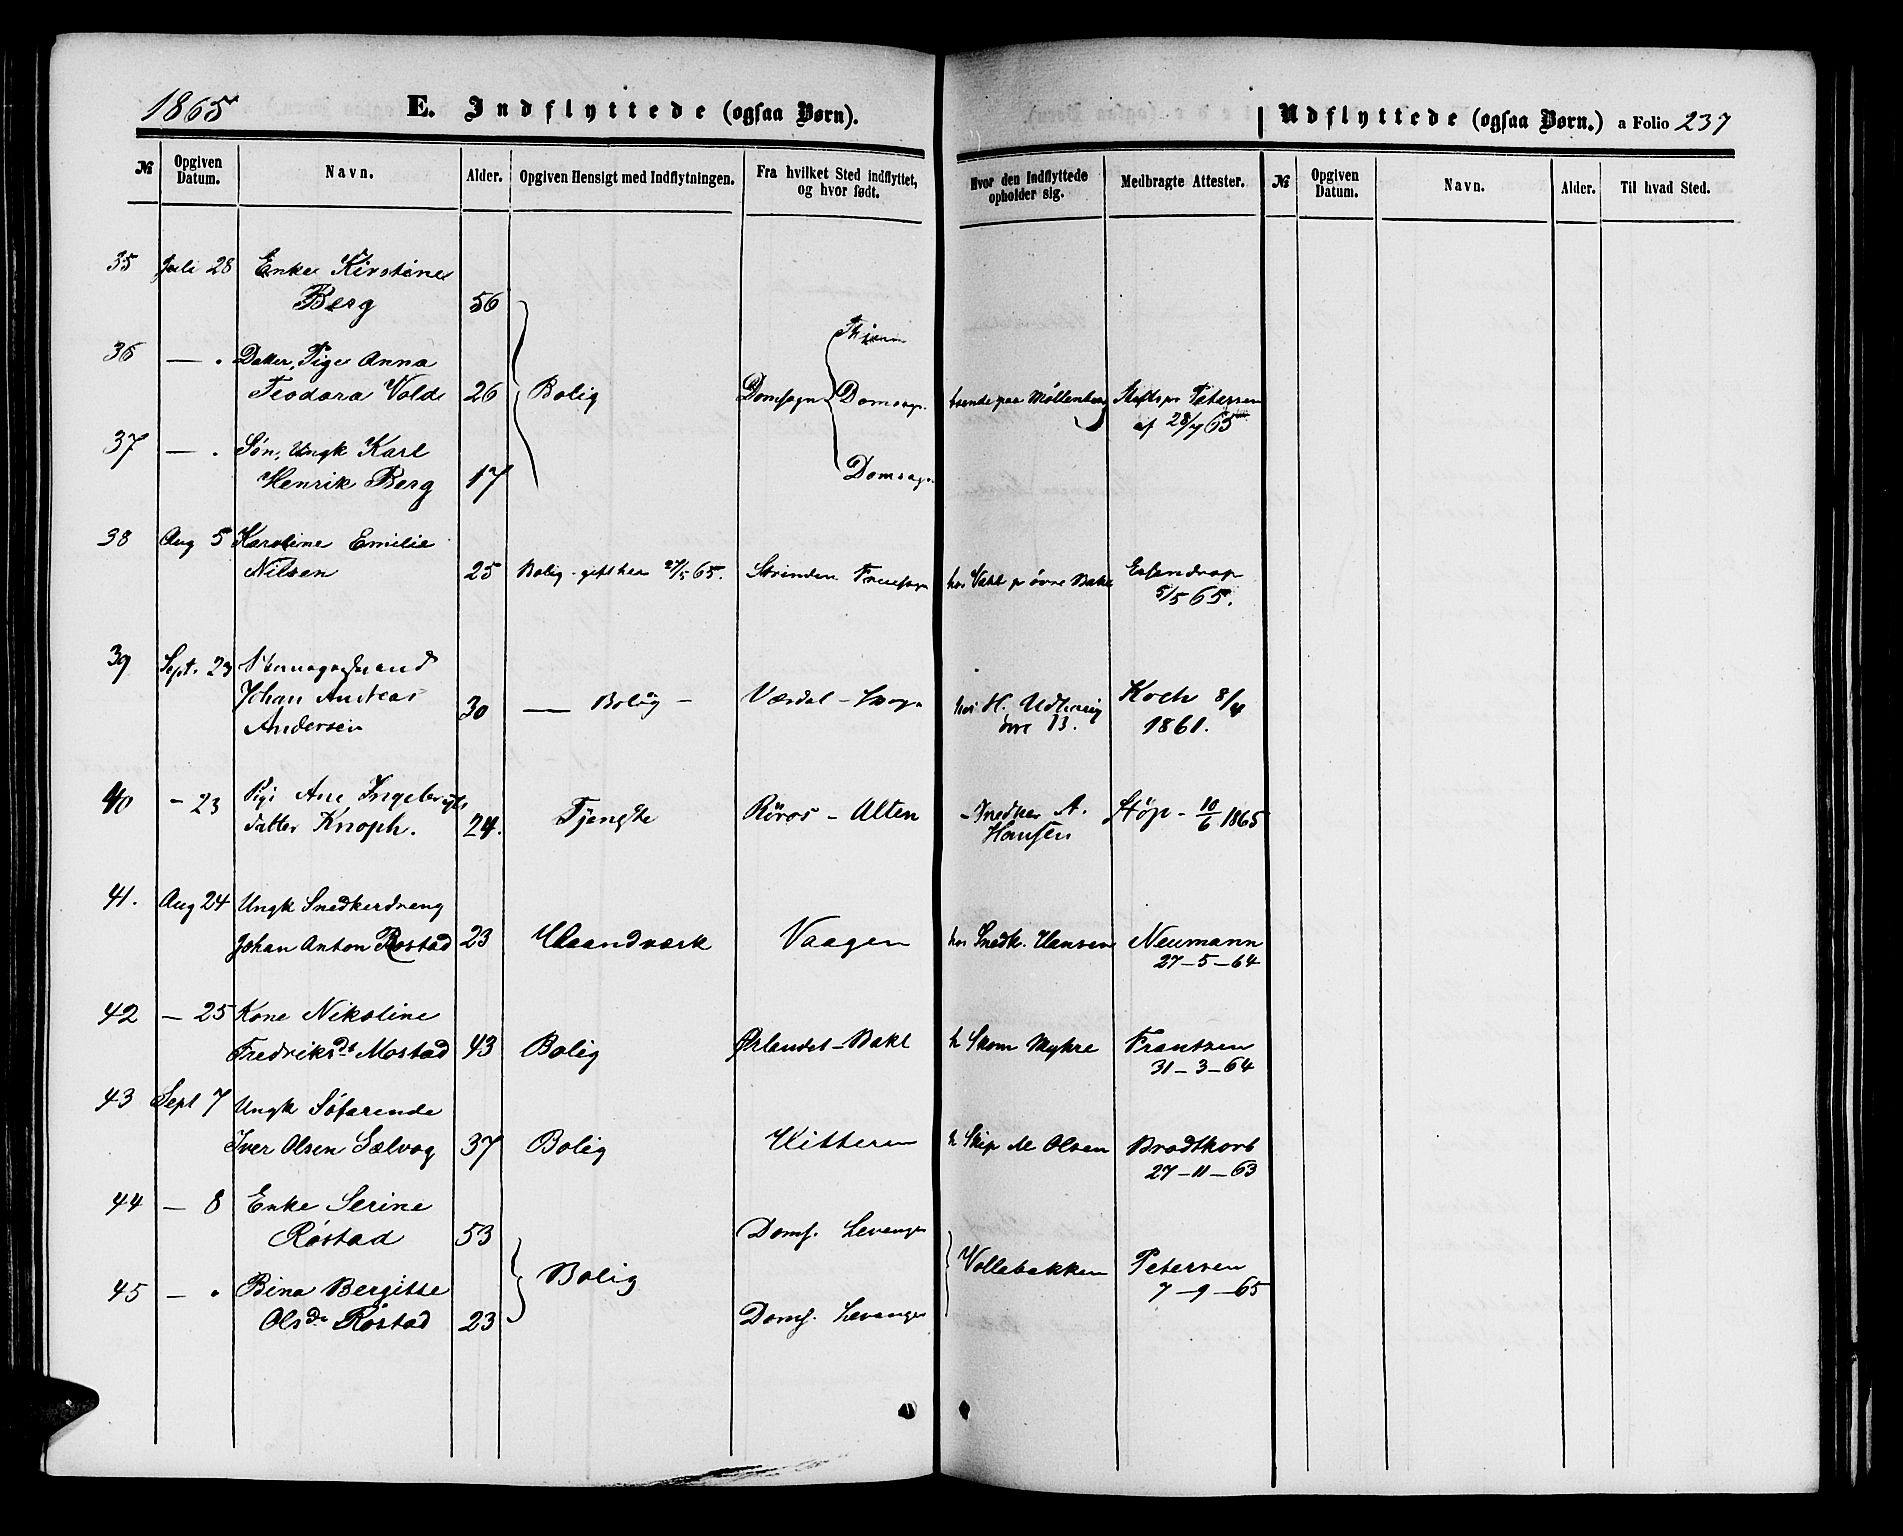 1865
E. Indflyttede (ogsaa Børn).
Udflyttede (ogsaa Børn.) a Folio 237
№ Opgiven Datum. Navn. Alder. Opgiven Hensigt med Indflytningen. Fra hvilket Sted indflyttet, og hvor født. Hvor den Indflyttede opholder sig. Medbragte Attester. № Opgiven Datum. Navn. Alder. Til hvad Sted.
35 Juli 28 Enke Kirstine
Berg 56
36 — . Datter, Pige Anna
Teodora Vold 26 Bolig Domsogn Domsogn. boende paa Møllenberg Stiftspr Petersen
af 28/7 65
37 — . Søn, Ungk Karl
Henrik Berg 17 Domsogn
38 Aug 5 Karoline Emilie
Nilsen 25 Bolig - gift her 27/5 65. Strinden Fruesogn hos Vekt p øvre Bakl Essendrop
5/5 65.
39 Sept. 23
Johan Andreas
Andersen 30 — Bolig - Værdal - hos H. Koch 8/4
1861.
40 - 23 Pige Ane Ingebrigts
datter Knoph. 24. Tjeneste Røros - Alten - Snedker A.
Hansen Støp - 10/6 1865
41. Aug 24 Ungk Snedkerdreng
Johan Anton Rostad 23 Haandværk Vaagen hos Snedk. Hansen Neumann
27-5-64
42 - 25 Kone Nikoline
Fredriksdt Mostad 43 Bolig Ørlandet - Bakl h Skom Myhre Frantzen
31-3-64
43 Sept 7 Ungk Søfarende
Iver Olsen Sælvog 37 Bolig Hitteren h Skip M Olsen Brodtkorb
27-11-63
44 — 8 Enke Serine
Røstad 53 Domf. Levanger
45 — . Bina Bergitte Bolig Vollabakken Petersen
7-9-65
Olsd. Røstad 23 Domf. Levanger